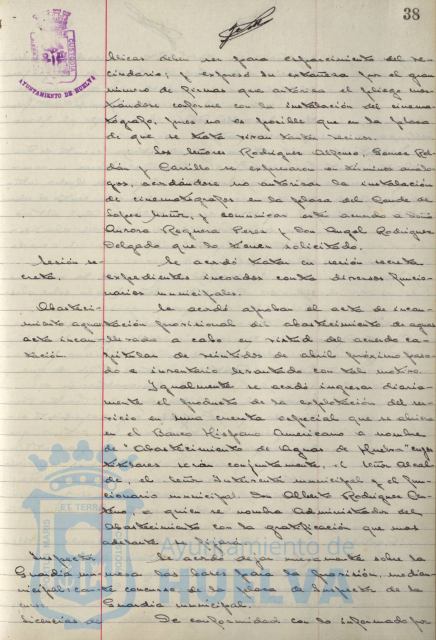 38
AYUNTAMIENTO DE HUELVA
blicas deben ser para esparcimiento del ve-
cindario; y expresó su extrañeza por el gran
número de firmas que autoriza el pliego mos-
trándose conforme con la instalación del cinema-
tógrafo, pues no es posible que en la plaza
de que se trata vivan tantos vecinos.
Los señores Rodríguez Alfonso, Gómez Rol-
dán y Carrillo se expresaron en términos análo-
gos, acordándose no autorizar la instalación
de cinematógrafos en la plaza del Conde de
López Muñoz, y comunicar este acuerdo a Doña
Aurora Requena Pérez y Don Angel Rodríguez
Delgado que lo tienen solicitado.
Sesión se-
creta.
Se acordó tratar en sesión secreta
expedientes incoados contra diversos funcio-
narios municipales.
Abasteci-
miento aguas
acta incau-
tación.
Se acordó aprobar el acta de incau-
tación provisional del abastecimiento de aguas
llevada a cabo en virtud del acuerdo ca-
pitular de veintidos de abril próximo pasa-
do e inventario levantado con tal motivo.
Igualmente se acordó ingresar diaria-
mente el producto de la explotación del ser-
vicio en una cuenta especial que se abrirá
en el Banco Hispano Americano a nombre
de "Abastecimiento de Aguas de Huelva" cuyos
titulares serán conjuntamente, el señor Alcal-
de, el señor Interventor municipal y el fun-
cionario municipal Don Alberto Rodríguez
a quien se nombra Administrador del
Abastecimiento con la gratificación que mas
adelante se fijará.
Inspector
Guardia mu-
nicipal:
Se acordó dejar nuevamente sobre la
mesa las bases para la provisión, median-
te concurso, de la plaza de Inspector de la
Guardia municipal.
Licencias de
De conformidad con lo informado por
Ayuntamiento de
HUELVA